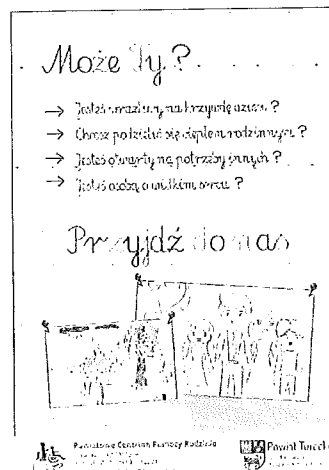 Może Ty?
→ Jesteś wrażliwy na krzywdę dzieci?
→ Chcesz podzielić się ciepłem rodzinnym?
→ Jesteś otwarty na potrzeby innych?
→ Jesteś osobą o wielkim sercu?
Przyjdź do nas
Powiatowe Centrum Pomocy Rodzinie
Powiat Turecki